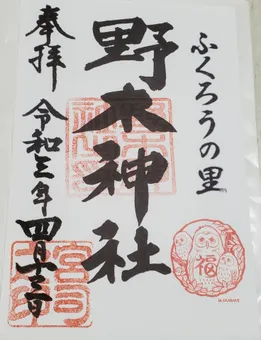 ふくろうの里
野木神社
奉拝
令和三年四月十三日
福